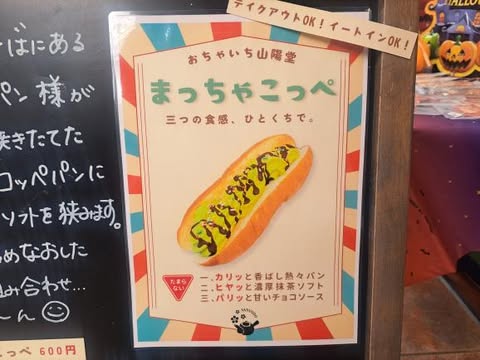 テイクアウトOK！イートインOK！
おちゃいち山陽堂
まっちゃこっぺ
三つの食感、ひとくちで。
たまらない
一、カリッと香ばし熱々パン
二、ヒヤッと濃厚抹茶ソフト
三、パリッと甘いチョコソース
ばにある
パン様が
焼きたてた
コッペパンに
ソフトを挟みます。
めなおした
み合わせ…
〜ん
っぺ 600円